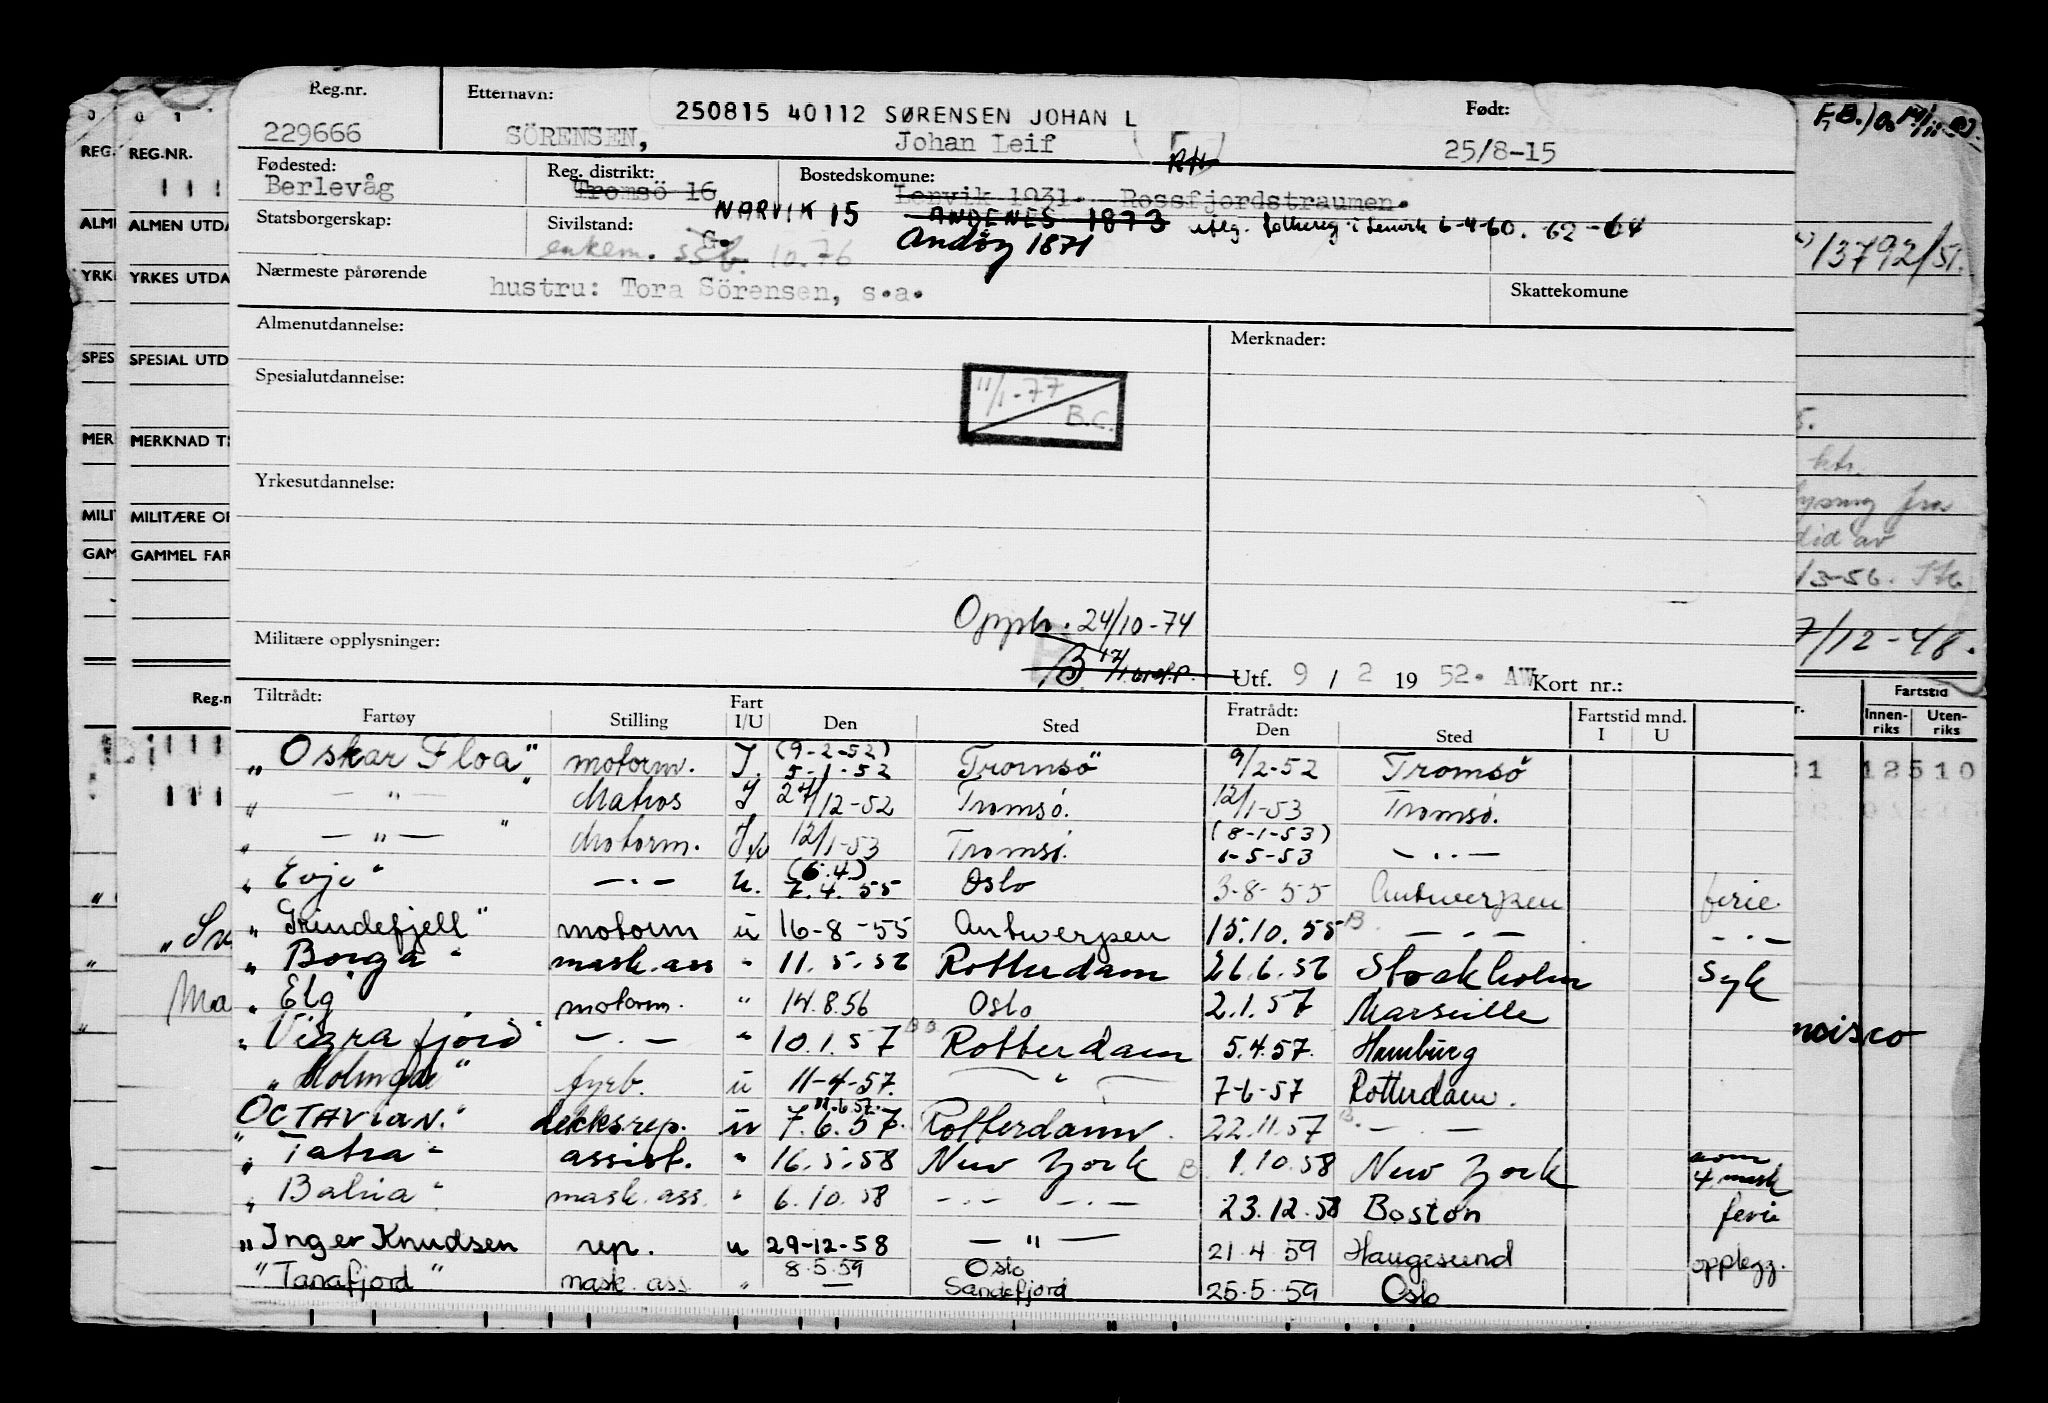 Reg.nr. Etternavn: 250815 40112 SØRENSEN JOHAN L Født:
229666 SÖRENSEN, Johan Leif 25/8-15
Fødested: Reg. distrikt: Bostedskomune:
Berlevåg Tromsö 16 Lenvik 1931. Rossfjordstraumen.
Statsborgerskap: Sivilstand: NARVIK 15 ANDENES 1873 utlg. folkereg i Lenvik 6-4-60. 62-64
G. Andøy 1871
enkem. SSB. 10.76
Nærmeste pårørende hustru: Tora Sörensen, s.a. Skattekomune
Almenutdannelse: Merknader:
Spesialutdannelse: 11/1-77 B.C.
Yrkesutdannelse:
Opph. 24/10-74
Militære opplysninger:
Utf. 9 / 2 19 52. AW Kort nr.:
Tiltrådt: Fratrådt:
Fartøy Stilling Fart I/U Den Sted Den Sted Fartstid mnd. I U
"Oskar Floa" motorm. I. (9-2-52) 5-1-52 Tromsö 9/2-52 Tromsö
" — " — " Matros I 27/12-52 Tromsö. 12/1-53 Tromsö.
" — " — " Motorm. I/u 12/1-53 Tromsö. (8-1-53) 1-5-53 — .. —
"Evje" — . — U. (6.4) 7.4.55 Oslo 3-8-55 Antwerpen ferie
"Grindefjell" motorm u 16-8-55 Antwerpen 15.10.55 B. — . — — . —
"Borga" mask.ass " 11.5.56 Rotterdam 26.6.56 Stockholm Syk
"Elg motorm. " 14.8.56 Oslo 2.1.57 Marseille
"Vigrafjord" — . — " 10.1.57 Rotterdam 5.4.57. Hamburg
"Molinga" fyrb. u 11-4-57. — " — 7-6-57 Rotterdam.
OCTAVIAN." dekksrep. u 11.6.57. 7.6.57. Rotterdam. 22.11.57 B. — . —
"Tatra" assist. " 16.5.58 New York B. 1.10.58 New York som 4.mask
"Bahia" mask.ass. " 6.10.58 — . — — . — 23.12.58 Boston ferie
"Inger Knudsen rep. u 29-12-58 — " — 21.4.59 Haugesund opplegg.
"Tanafjord" mask.ass. " 8.5.59 — Oslo Sandefjord 25.5.59 Oslo
REG. REG.NR.
ALM ALMEN UTDA
YRK YRKES UTDA
SPES SPESIAL UTD
MER MERKNAD T
MILI MILITÆRE OP
GAM GAMMEL FAR
Reg.n
Ma
13792/51.
7/12-48.
Fartstid
Innen-riks Uten-riks
21 12510
ncisco